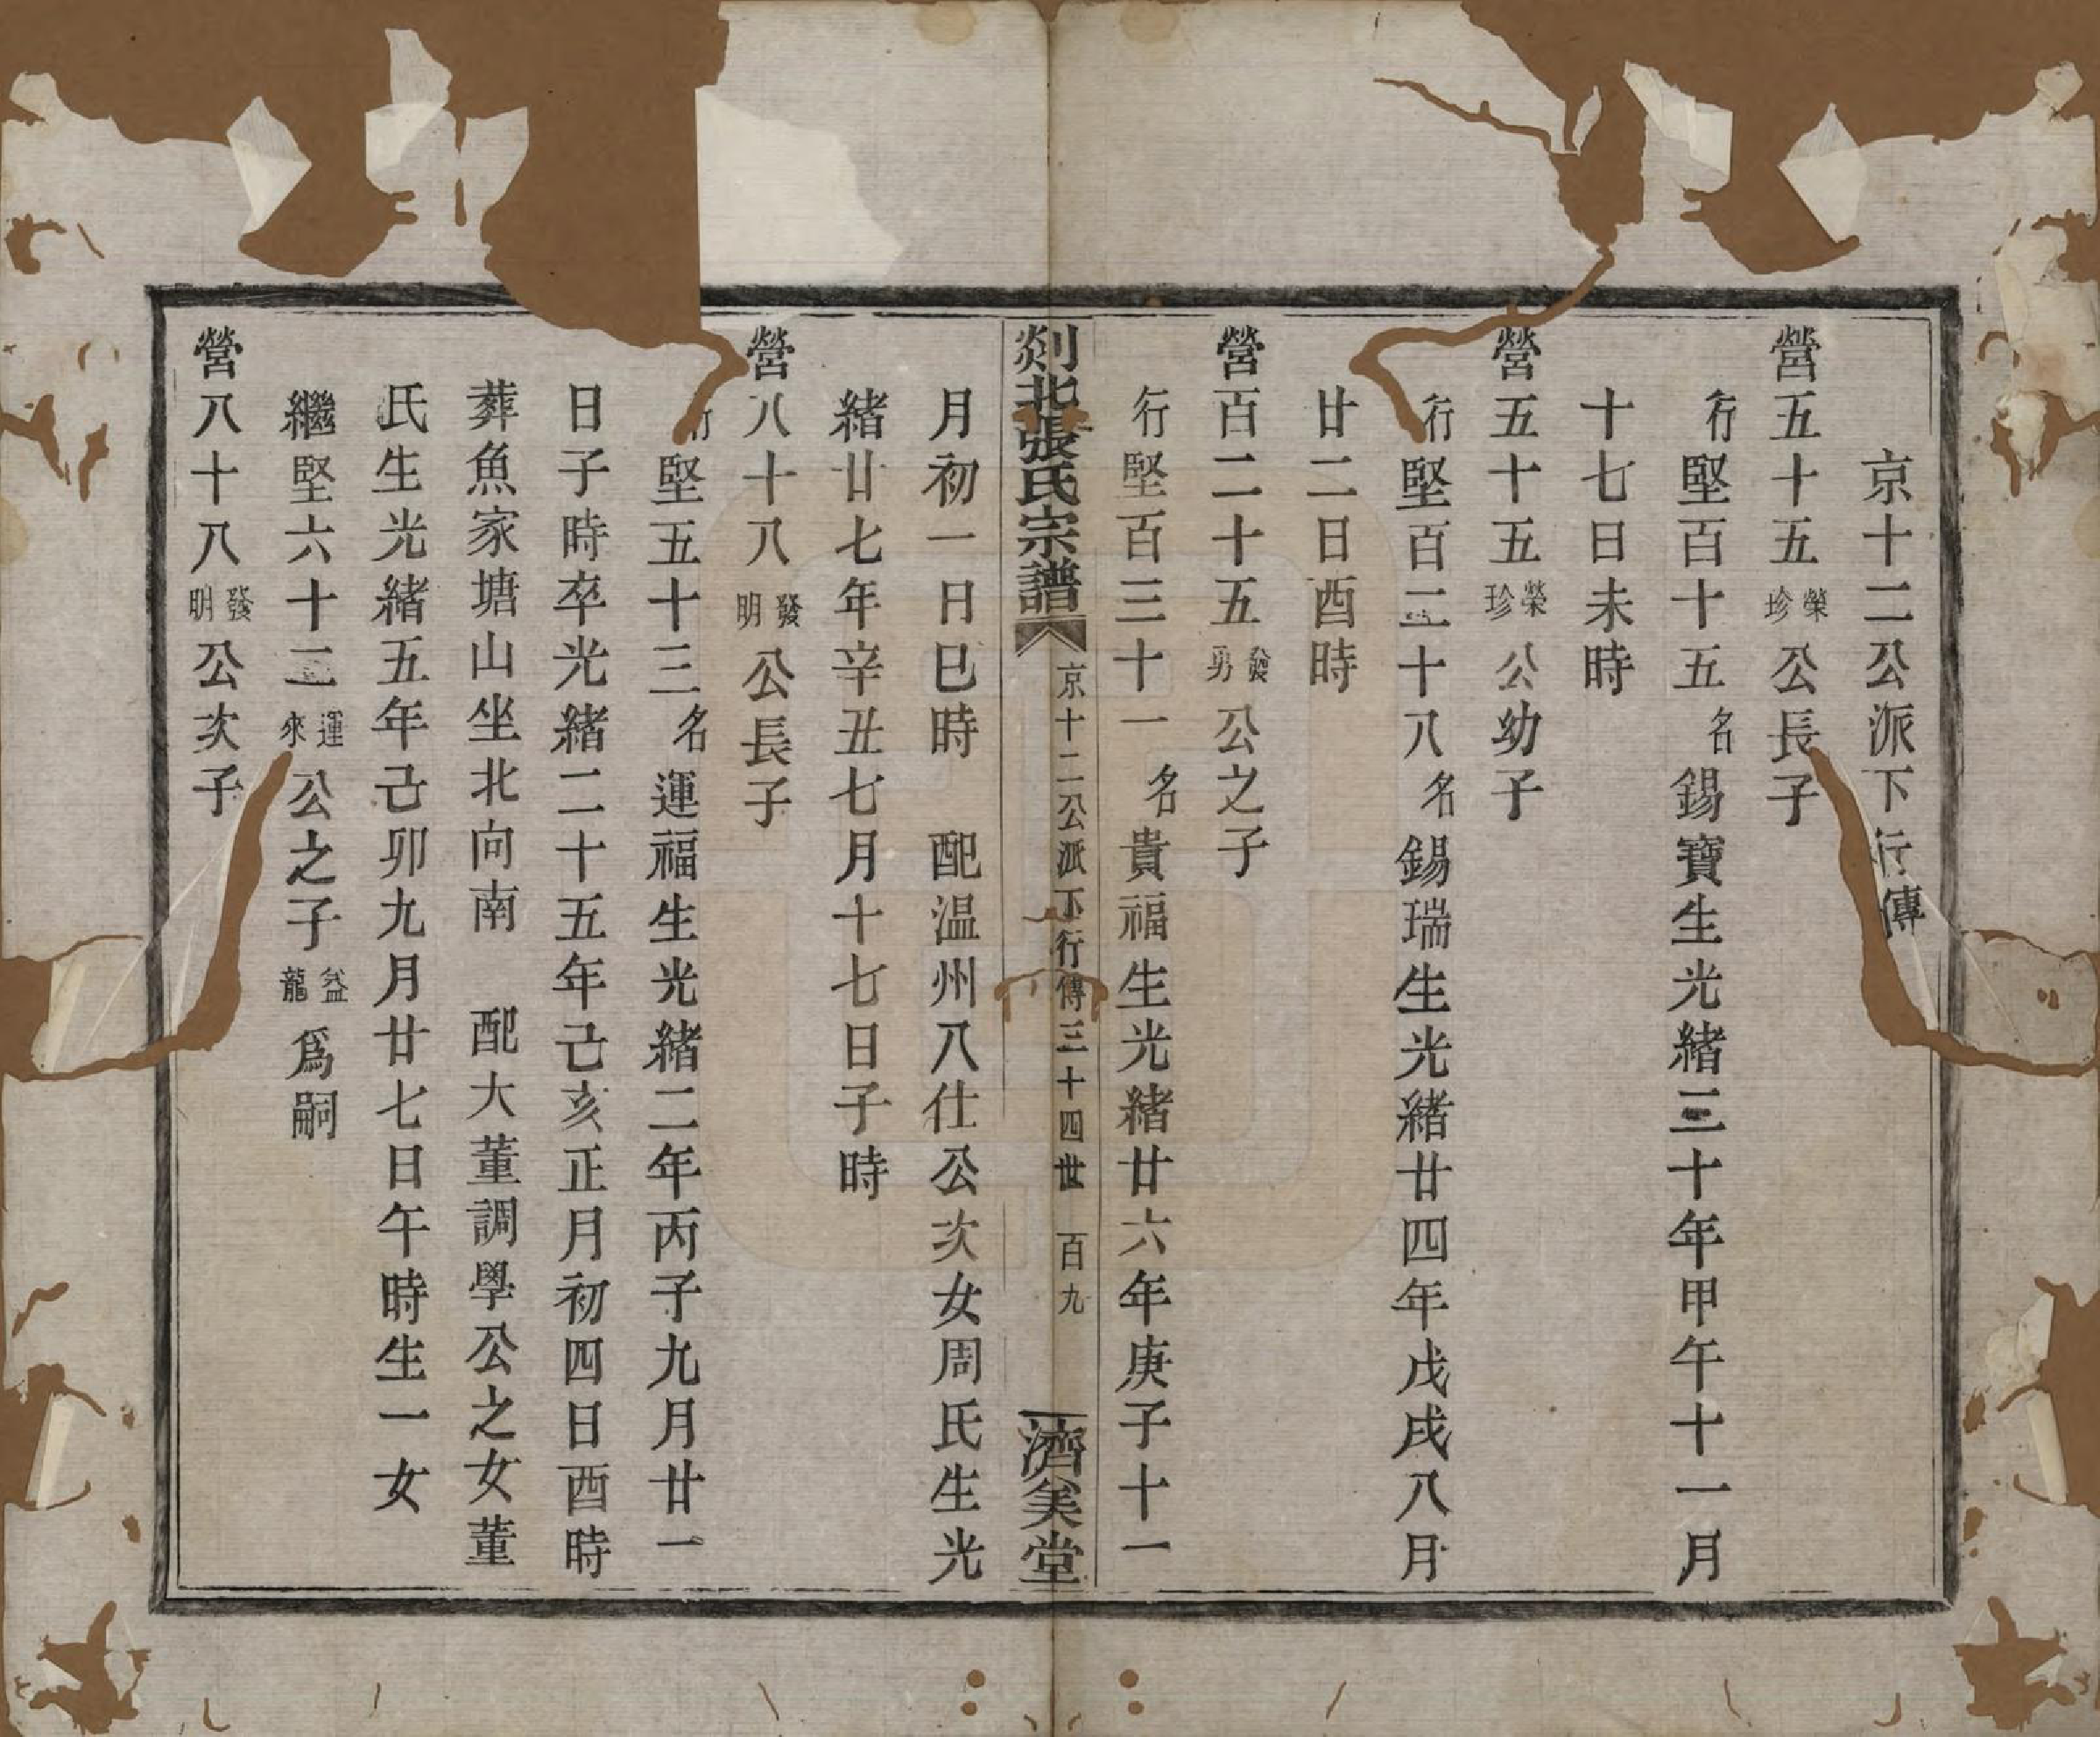 京十二公派下行傳
營五十五榮珍公長子
行堅百十五名錫寶生光緒三十年甲午十一月
十七日未時
營五十五榮珍公幼子
行堅百二十八名錫瑞生光緒廿四年戊戌八月
廿二日酉時
營百二十五發勇公之子
行堅百三十一名貴福生光緒廿六年庚子十一
剡北張氏宗譜
京十二公派下行傳三十四世
百九
濟美堂
月初一日巳時 配温州八仕公次女周氏生光
緒廿七年辛丑七月十七日子時
營八十八發明公長子
行堅五十三名運福生光緒二年丙子九月廿一
日子時卒光緒二十五年己亥正月初四日酉時
葬魚家塘山坐北向南 配大董調學公之女董
氏生光緒五年己卯九月廿七日午時生一女
繼堅六十二運來公之子益龍爲嗣
營八十八發明公次子